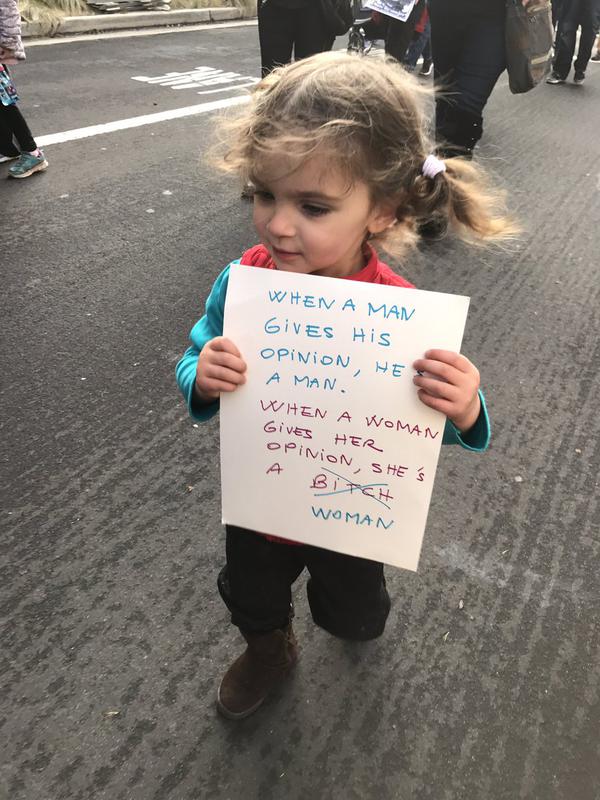 WHEN A MAN
GIVES HIS
OPINION, HE'S
A MAN.
WHEN A WOMAN
GIVES HER
OPINION, SHE'S
A BITCH
WOMAN